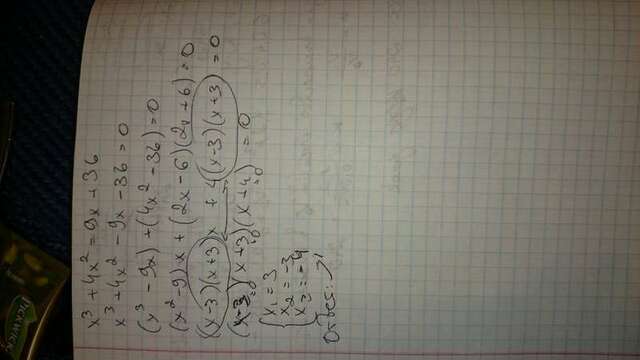 x³ + 4x² = 9x + 36
x³ + 4x² - 9x - 36 = 0
(x³ - 9x) + (4x² - 36) = 0
(x² - 9)x + (2x - 6)(2x + 6) = 0
(x-3)(x+3)x + 4(x-3)(x+3) = 0
(x-3)(x+3)(x+4) = 0
=0 =0 =0
x₁ = 3
x₂ = -3
x₃ = -4
Ответ:
PICKWICK